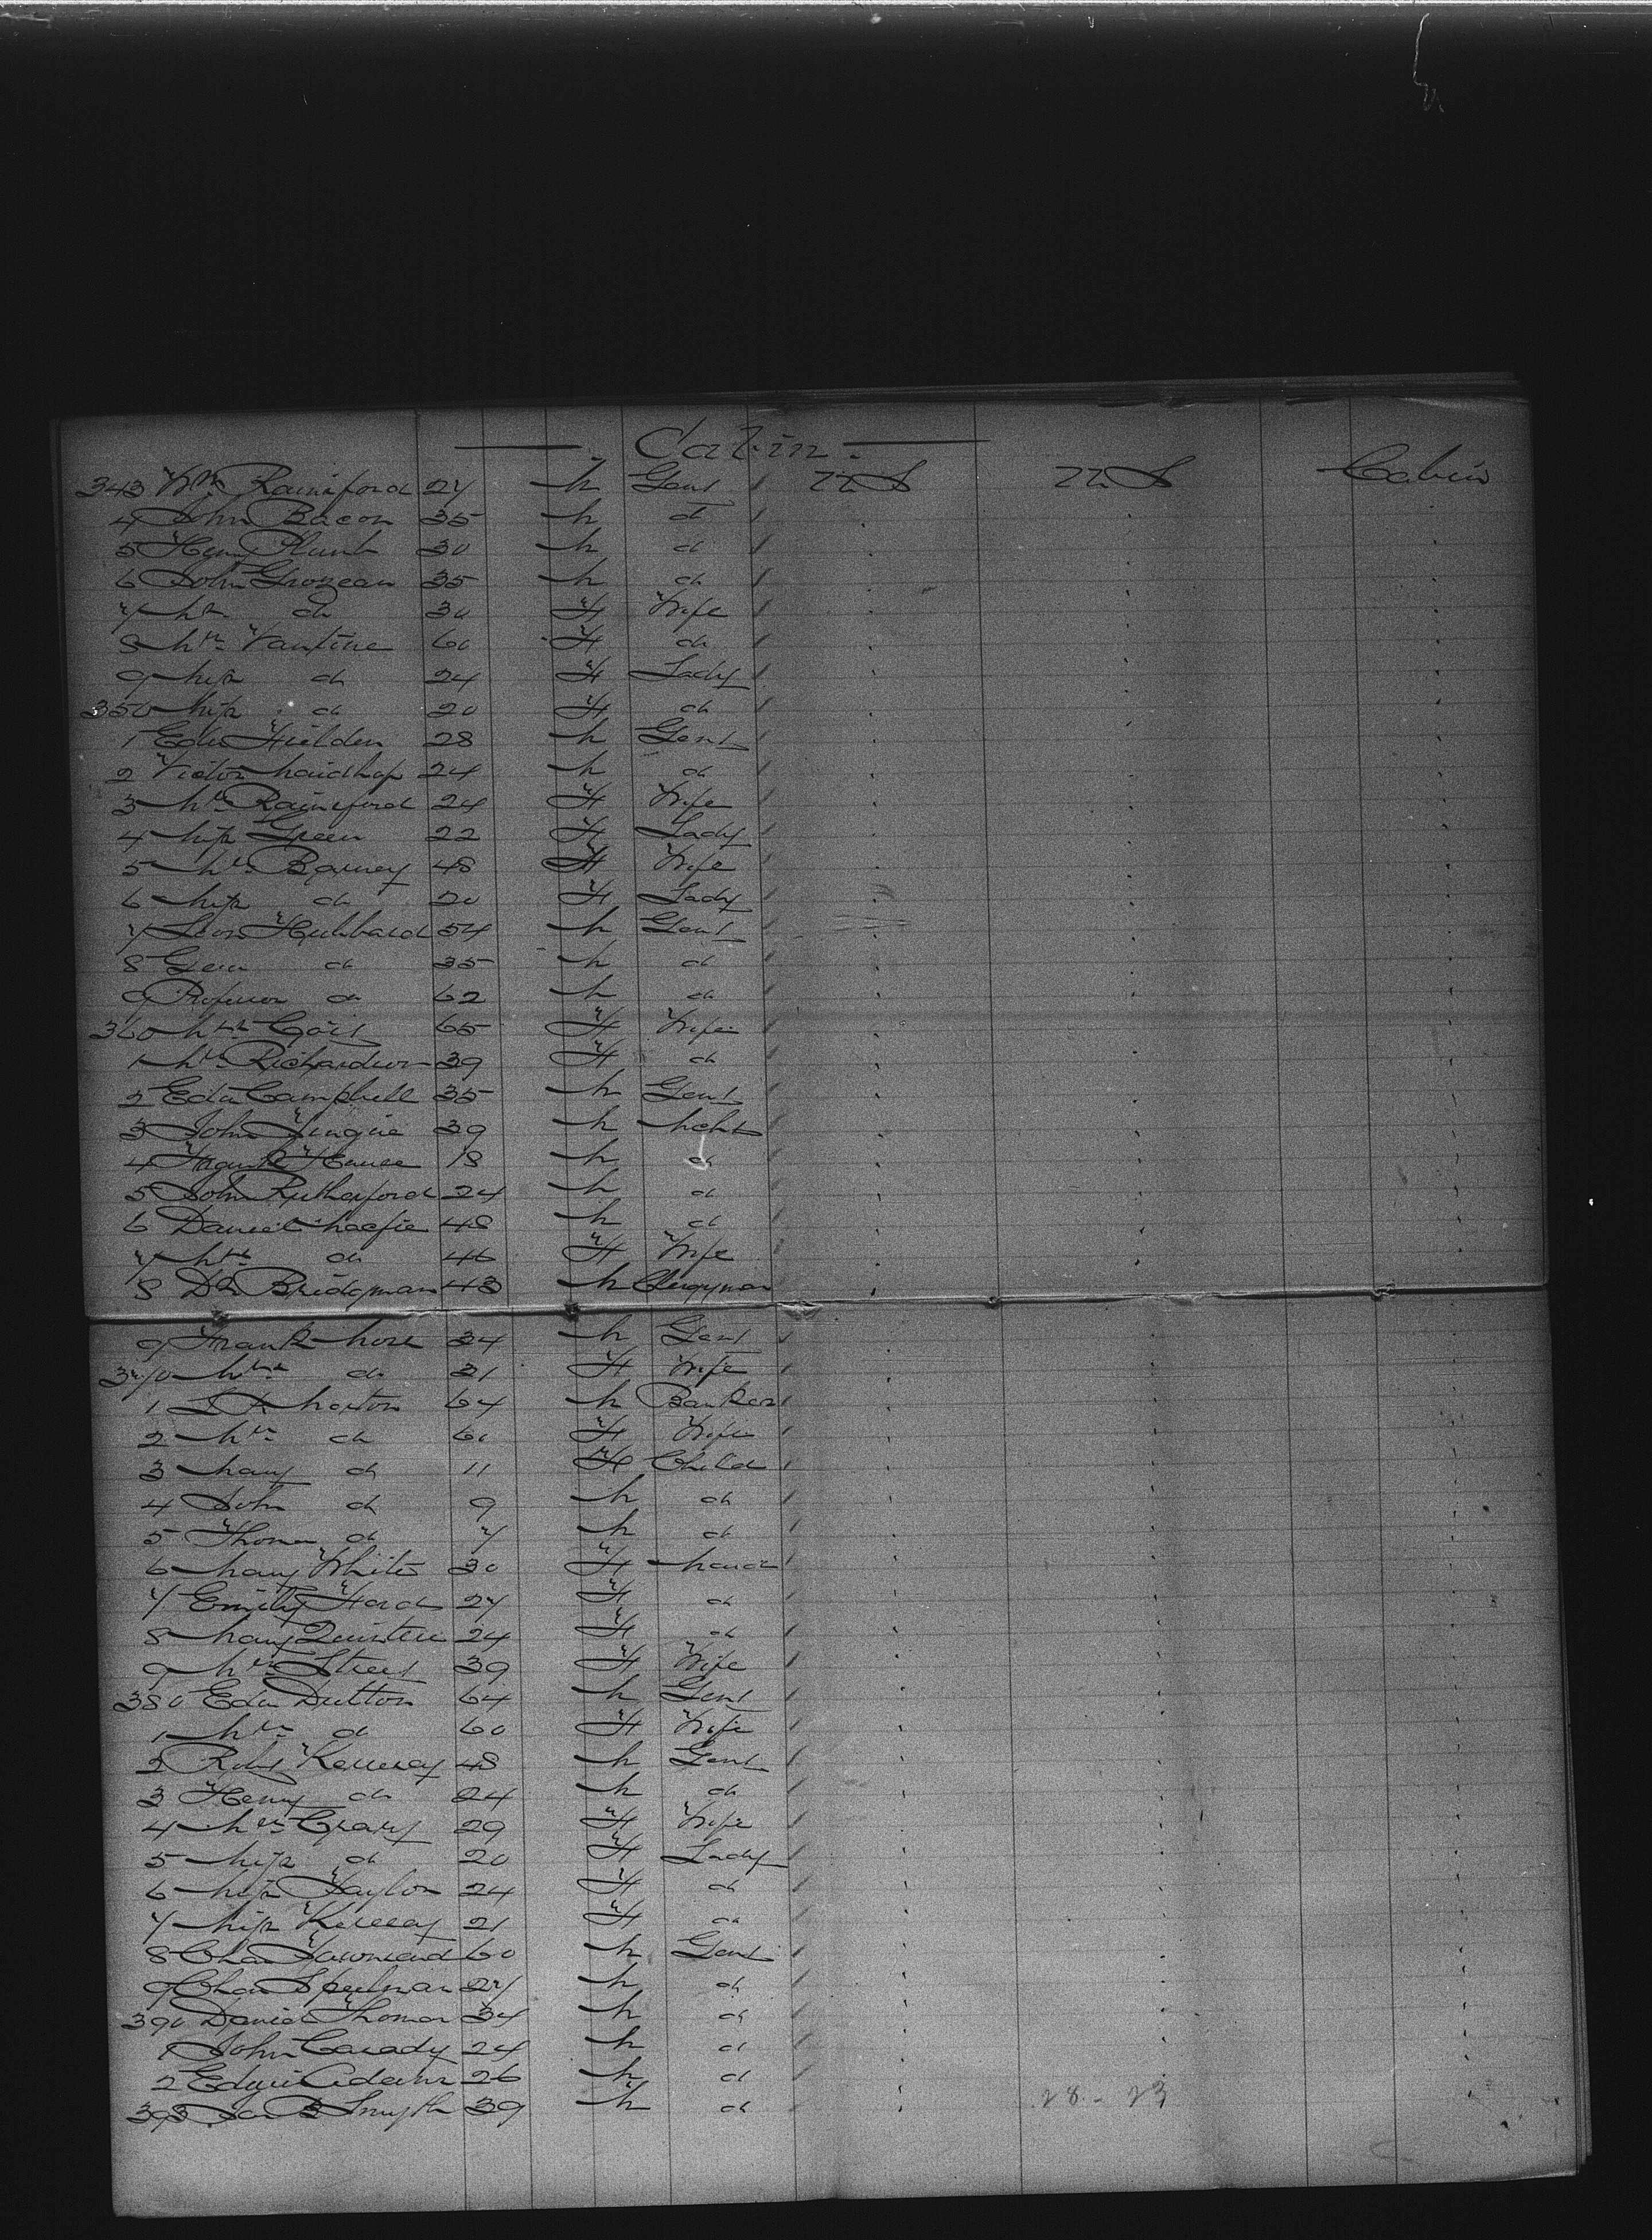 Cabin.
343 Wm Rainsford 27 M Gent 1 U S U S Cabin
4 John Bacon 35 M do 1
5 Heny Plumb 30 M do 1
6 John Grozean 35 M do 1
7 Mrs do 30 F Wife 1
8 Mrs Vantine 60 F do 1
9 Miss do 24 F Lady 1
350 Miss do 20 F do 1
1 Edw Fielden 28 M Gent 1
2 Victor 24 M do 1
3 Mrs Rainsford 24 F Wife 1
4 Miss Green 22 F Lady 1
5 Mrs Barney 48 F Wife 1
6 Miss do 20 F Lady 1
7 Hubbard 54 M Gent 1
8 Geo do 35 M do 1
9 Professor do 62 M do 1
360 Mrs 65 F Wife 1
1 Mrs Richardson 39 F do 1
2 Edw Campbell 35 M Gent 1
3 John 39 M Mcht 1
4 Frank 18 M do 1
5 John Rutherford 24 M do 1
6 Daniel 48 M do 1
7 Mrs do 46 F Wife 1
8 Dr Bridgman 43 M Clergyman
9 Frank 34 M Gent 1
370 Mrs do 31 F Wife 1
1 Morton 64 M Banker 1
2 Mrs do 60 F Wife 1
3 Mary do 11 F Child 1
4 John do 9 M do 1
5 Thomas do 7 M do 1
6 Mary White 30 F Maid 1
7 Emily Ford 27 F do 1
8 Mary 24 F do 1
9 Mrs Street 39 F Wife 1
380 Edw Dutton 64 M Gent 1
1 Mrs do 60 F Wife 1
2 Robt 48 M Gent 1
3 Henry do 24 M do 1
4 Mrs Crary 29 F Wife 1
5 Miss do 20 F Lady 1
6 Miss Taylor 24 F do 1
7 Miss 21 F do 1
8 Chas Townsend 60 M Gent 1
9 Chas Spelman 27 M do 1
390 David Thomas 34 M do 1
1 John 24 M do 1
2 Adams 26 M do 1
393 Jas B Smyth 39 M do 1
28 - 23